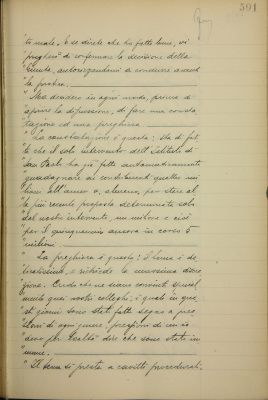 591
"to male, e se direte che ho fatto bene, vi
"pregherò di confermare la decisione della
"Giunta, autorizzandomi a condurre avanti
"la pratica.
"Ma desidero in ogni modo, prima di
"aprire la discussione, di fare una consta-
"tazione ed una preghiera.
"La constatazione è questa: Sta di fat-
"to che il solo intervento dell'Istituto di
"San Paolo ha già fatto
"guadagnare ai contribuenti quattro mi-
"lioni all'anno o, almeno, per stare al-
"la più recente proposta determinata solo
"dal nostro intervento, un milione e cioè
"per il quinquennio ancora in corso 5
"milioni.
"La preghiera è questa: Il tema è de-
"licatissimo, e richiede la massima discre-
"zione. Credo che ne siano convinti special-
"mente quei nostri colleghi, i quali in que-
"sti giorni sono stati fatti segno a pres-
"sioni di ogni genere, pressioni di cui io
"devo per lealtà dire che sono stato im-
"mune.
"Il tema si presta a